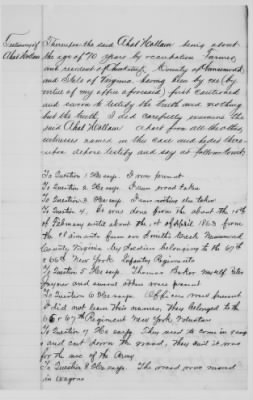 Testimony of
Ahab Hallam
Thereupon the said Ahab Hallam being about
the age of 70 years by occupation Farmer,
and resident of County of Nansemond
and State of Virginia having been by me (by
virtue of my office aforesaid) first cautioned
and sworn to testify the truth and nothing
but the truth, I did carefully examine the
said Ahab Hallam apart from all the other
witnesses named in this case and he
depose testify and say as follows:
To Question 1 He says. I was present
To Question 2. He says. I saw wood taken
To Question 3. He says. I saw nothing else taken
To Question 4. It was done from the about the 15th
of February until about the 1st of April 1863 from
the claimants farm on Smiths Creek Nansemond
County Virginia by Soldiers belonging to the 67th
& 66th New York Infantry Regiments
To Question 5. He says. Thomas Baker
and several others were present
To Question 6 He says. Officers were present
I did not learn their names, they belonged to the
66 & 67th Regiment New York Volunteers
To Question 7. He says. They used to come in
and cut down the wood, they said it was
for the use of the Army
To Question 8. He says. The wood was moved
in wagons